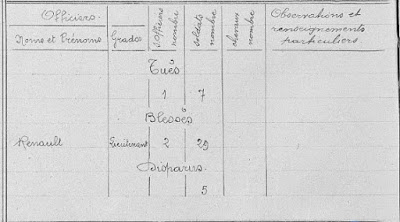 Officiers
Noms et Prénoms Grades S.officiers nombre soldats nombre chevaux nombre Observations et renseignements particuliers
Tués
1 7
Blessés
Renault Lieutenant 2 29
Disparus
5